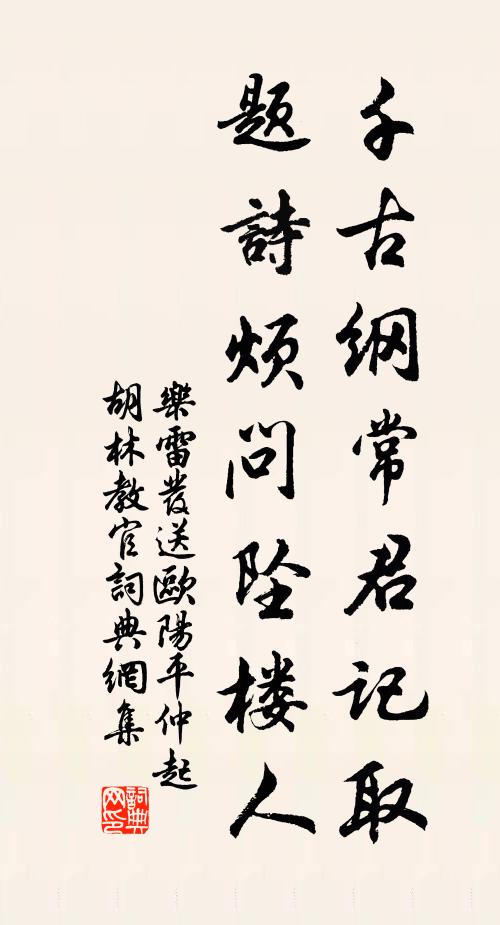 千古纲常君记取
题詩烦问坠楼人
樂雷發送歐陽平仲起
胡林教官詞典網集
詞典网印